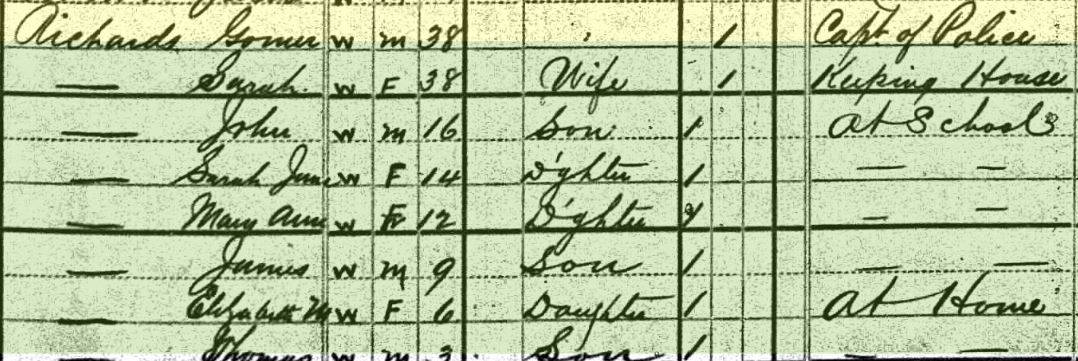 Richards Gomer W M 38 1 Capt. of Police
— Sarah. W F 38 Wife 1 Keeping House
— John W M 16 Son 1 At School
— Sarah Jane W F 14 D'ghter 1 — —
— Mary Ann W F 12 D'ghter 1 — —
— James W M 9 Son 1 — —
— Elizabeth M W F 6 Daughter 1 At Home
— Thomas W M 3 Son 1 — —